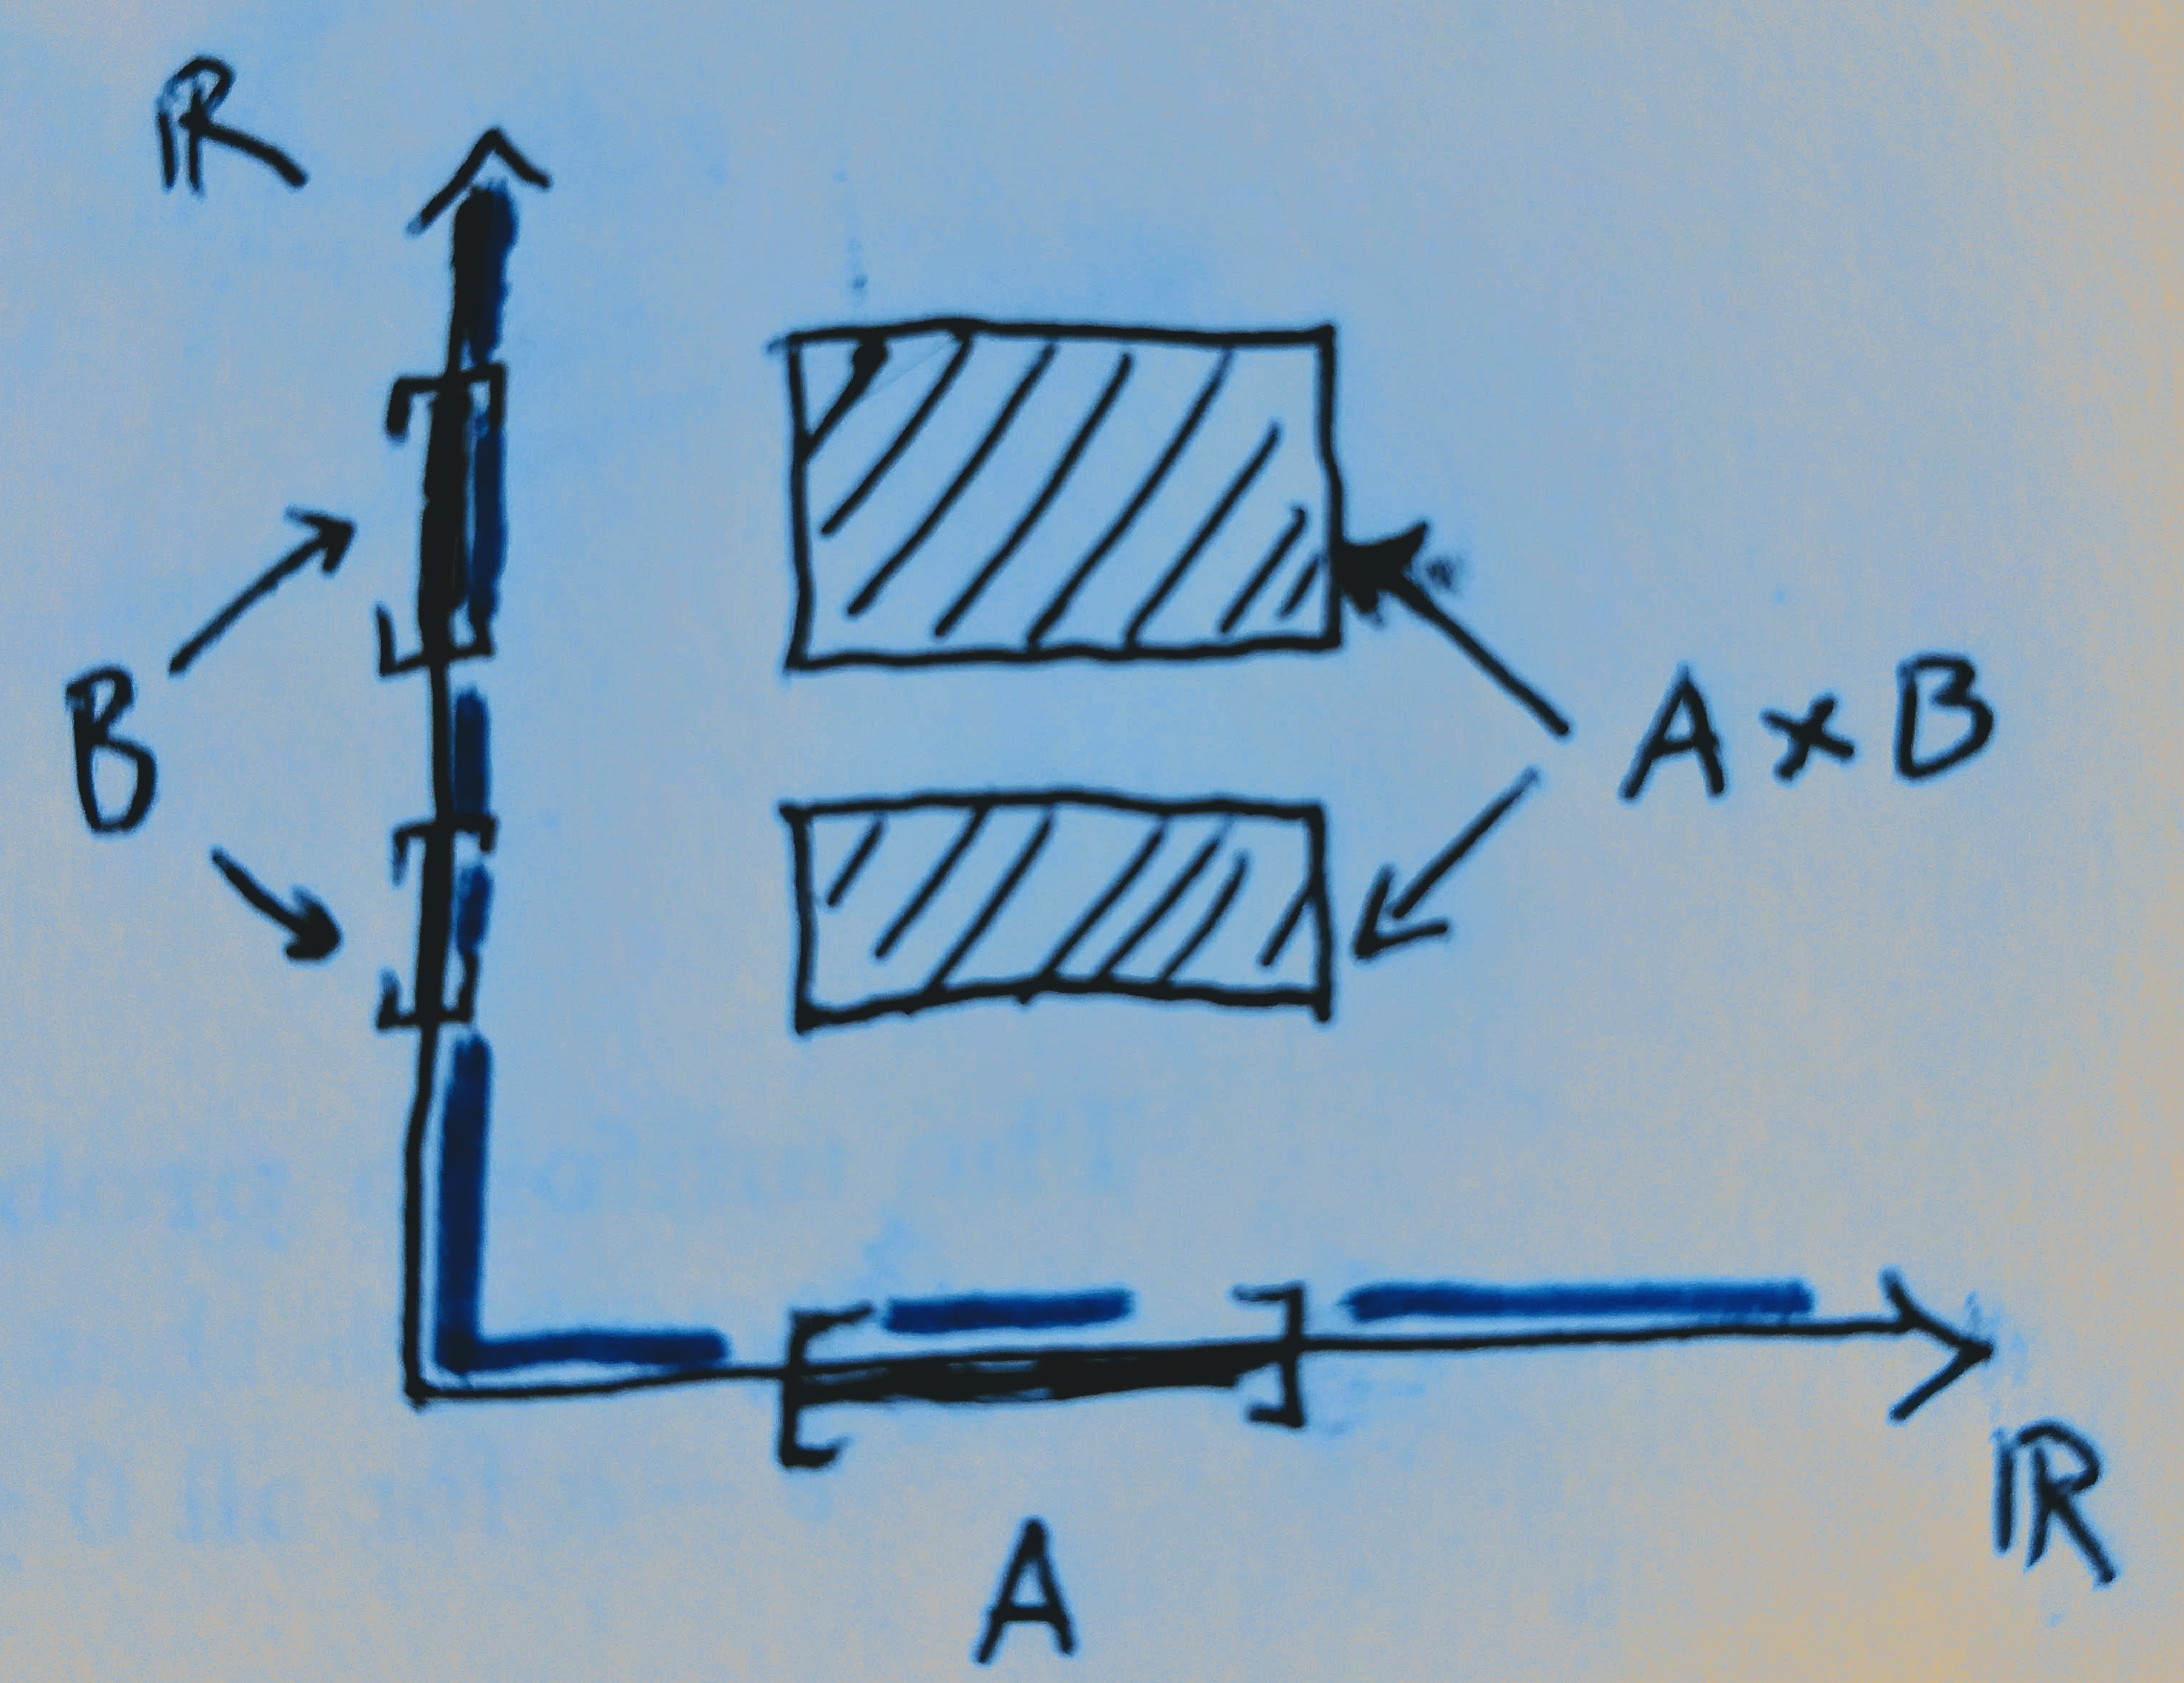 ℝ
B
A × B
ℝ
A